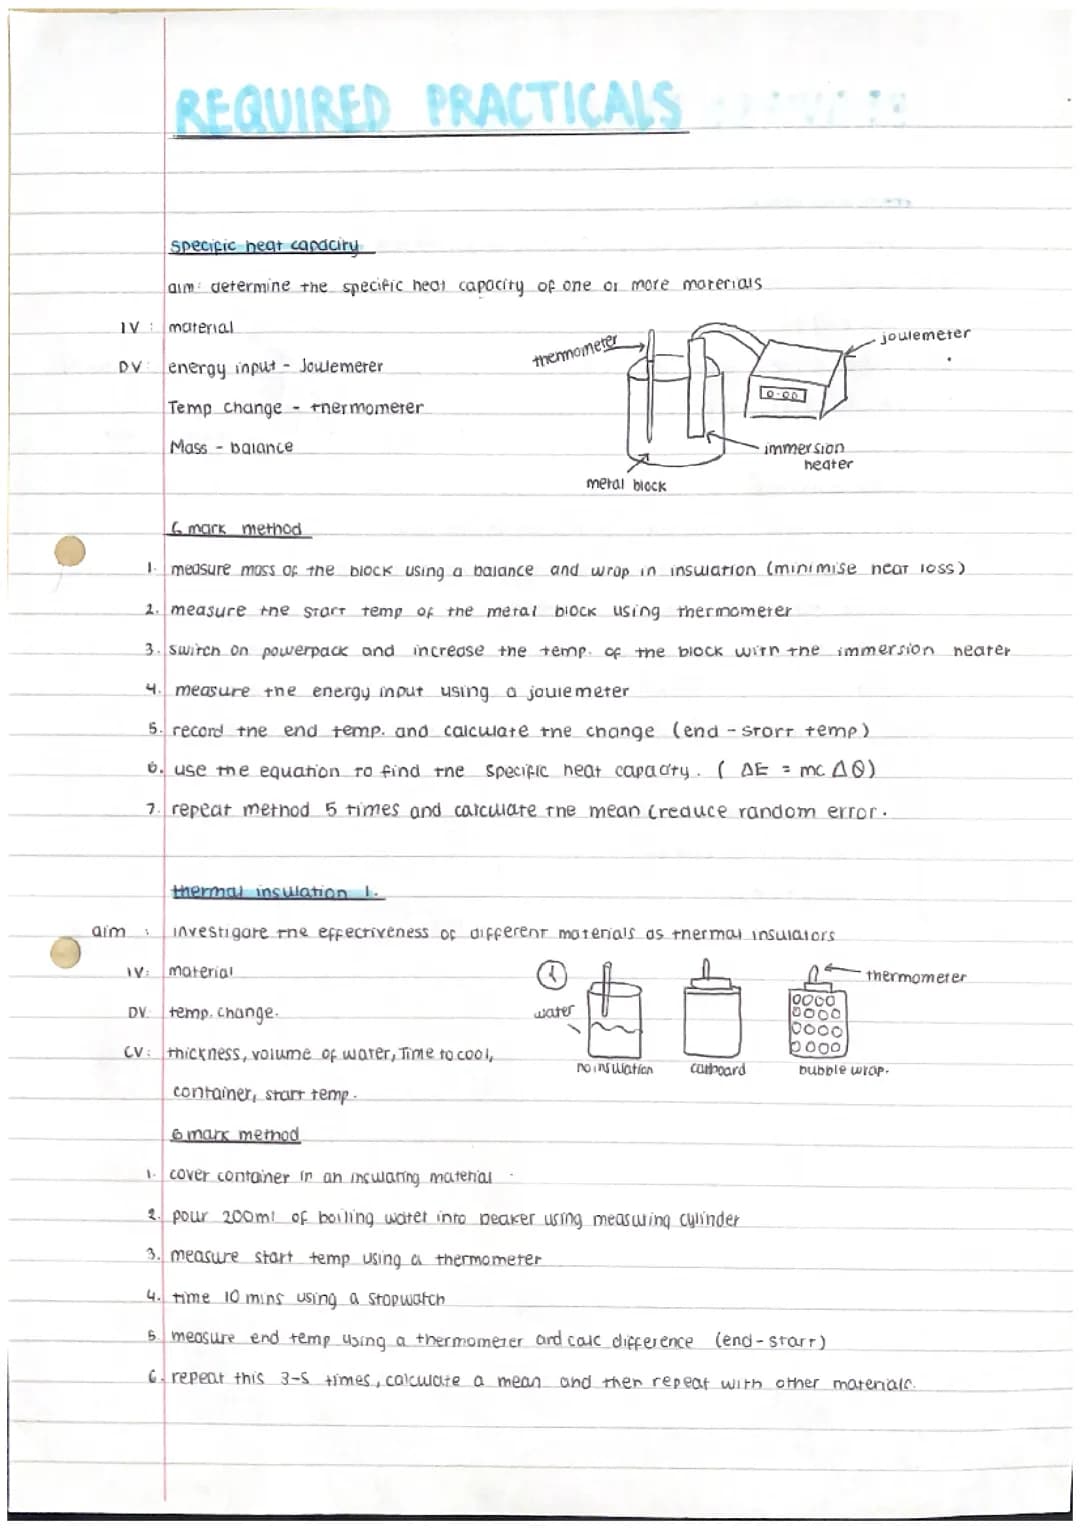 REQUIRED PRACTICALS
specific heat capacity
aim: determine the specific heat capacity of one or more materials
IV : material
DV: energy input - Joulemeter
Temp change - thermometer
Mass - balance
thermometer
joulemeter
0.00
immersion
heater
metal block
6 mark method
1. measure mass of the block using a balance and wrap in insulation (minimise heat loss)
2. measure the start temp of the metal block using thermometer
3. switch on powerpack and increase the temp. of the block with the immersion heater
4. measure the energy input using a joulemeter
5. record the end temp. and calculate the change (end - start temp)
6. use the equation to find the specific heat capacity. ( ΔE = mcΔθ)
7. repeat method 5 times and calculate the mean (reduce random error.
thermal insulation 1.
aim : investigate the effectiveness of different materials as thermal insulators
IV: material
DV: temp. change.
CV: thickness, volume of water, Time to cool,
container, start temp.
water
thermometer
no insulation
cardboard
bubble wrap.
6 mark method
1. cover container in an insulating material
2. pour 200ml of boiling water into beaker using measuring cylinder
3. measure start temp using a thermometer
4. time 10 mins using a stopwatch
5. measure end temp using a thermometer and calc difference (end-start)
6. repeat this 3-5 times, calculate a mean and then repeat with other materials.